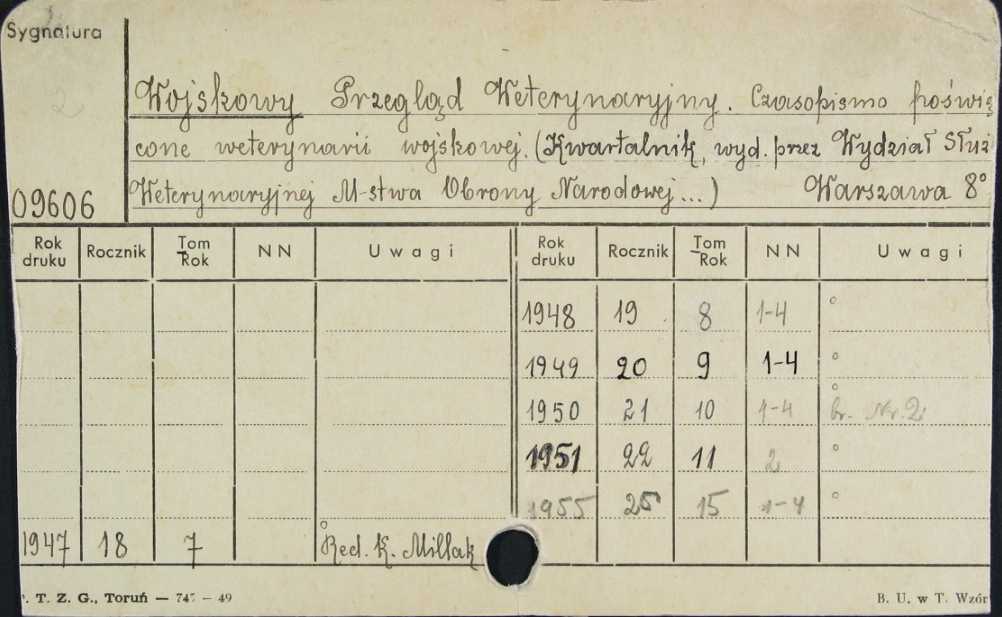 Sygnatura
Wojskowy Przegląd Weterynaryjny. Czasopismo poświę
cone weterynarii wojskowej. (Kwartalnik, wyd. przez Wydział Służ
Weterynaryjnej M-stwa Obrony Narodowej...) Warszawa 8°
09606
Rok druku Rocznik Tom Rok NN Uwagi Rok druku Rocznik Tom Rok NN Uwagi
1948 19 8 1-4 °
1949 20 9 1-4 °
1950 21 10 1-4 ° br. Nr. 2
1951 22 11 2 °
1955 25 15 1-4 °
1947 18 7 ° Red. K. Millak
. T. Z. G., Toruń — 747 — 49 B. U. w T. Wzór